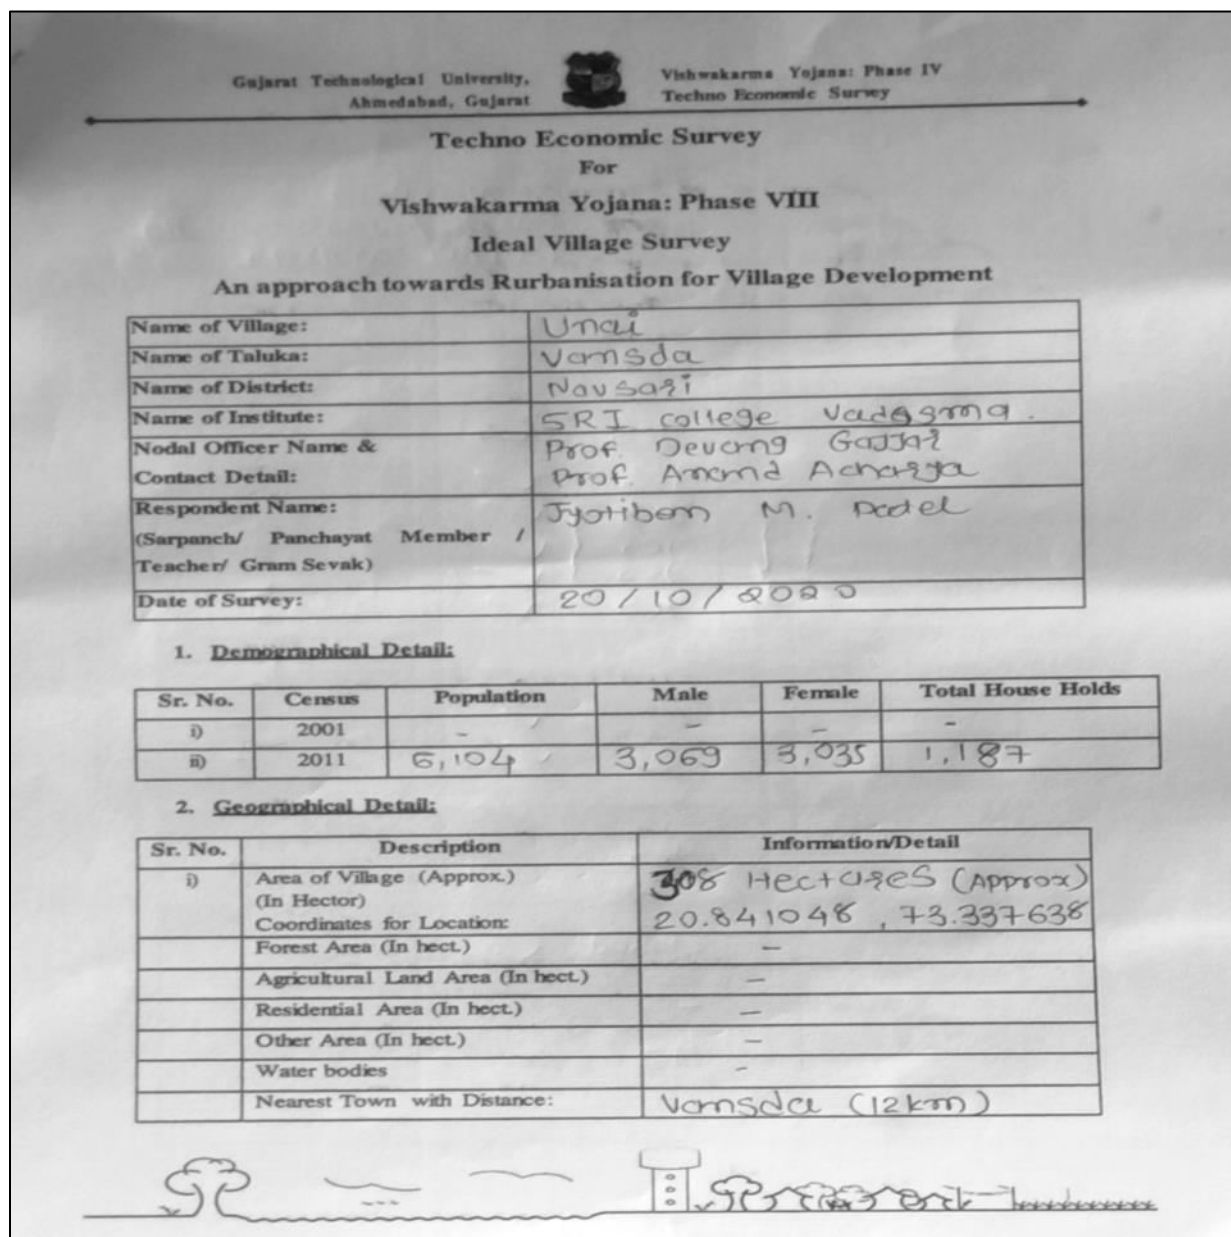 Gujarat Technological University,
Ahmedabad, Gujarat
Vishwakarma Yojana: Phase IV
Techno Economic Survey
Techno Economic Survey
For
Vishwakarma Yojana: Phase VIII
Ideal Village Survey
An approach towards Rurbanisation for Village Development
Name of Village: Unai
Name of Taluka: Vansda
Name of District: Navsari
Name of Institute: SRI college Vadasma.
Nodal Officer Name & Prof. Devang Gajjar
Contact Detail: Prof. Anand Acharya
Respondent Name: Jyotiben M. Patel
(Sarpanch/ Panchayat Member /
Teacher/ Gram Sevak)
Date of Survey: 20/10/2020
1. Demographical Detail:
Sr. No. Census Population Male Female Total House Holds
i) 2001 - - - -
ii) 2011 6,104 3,069 3,035 1,187
2. Geographical Detail:
Sr. No. Description Information/Detail
i) Area of Village (Approx.) 308 Hectares (Approx)
(In Hector)
Coordinates for Location: 20.841048, 73.337638
Forest Area (In hect.) -
Agricultural Land Area (In hect.) -
Residential Area (In hect.) -
Other Area (In hect.) -
Water bodies -
Nearest Town with Distance: Vansda (12km)